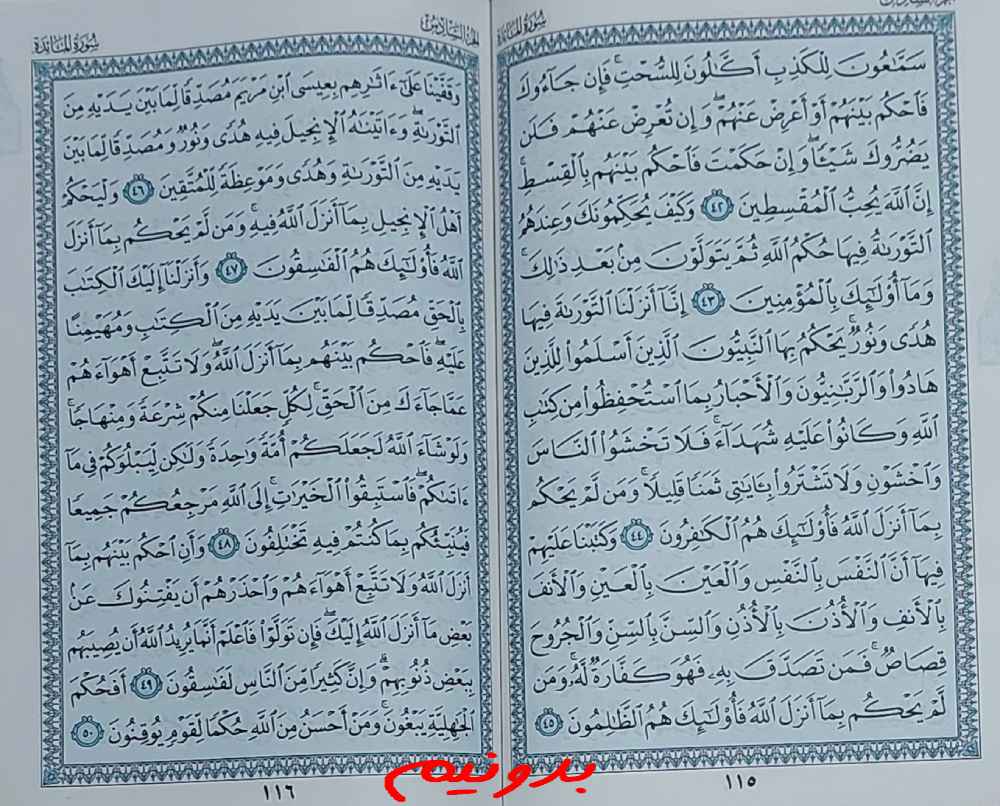 سورة المائدة
سَمَّٰعُونَ لِلْكَذِبِ أَكَّٰلُونَ لِلسُّحْتِ ۚ فَإِن جَآءُوكَ
فَٱحْكُم بَيْنَهُمْ أَوْ أَعْرِضْ عَنْهُمْ ۖ وَإِن تُعْرِضْ عَنْهُمْ فَلَن
يَضُرُّوكَ شَيْـًٔا ۖ وَإِنْ حَكَمْتَ فَٱحْكُم بَيْنَهُم بِٱلْقِسْطِ ۚ
إِنَّ ٱللَّهَ يُحِبُّ ٱلْمُقْسِطِينَ ٤٢ وَكَيْفَ يُحَكِّمُونَكَ وَعِندَهُمُ
ٱلتَّوْرَىٰةُ فِيهَا حُكْمُ ٱللَّهِ ثُمَّ يَتَوَلَّوْنَ مِنۢ بَعْدِ ذَٰلِكَ ۚ
وَمَآ أُو۟لَٰٓئِكَ بِٱلْمُؤْمِنِينَ ٤٣ إِنَّآ أَنزَلْنَا ٱلتَّوْرَىٰةَ فِيهَا
هُدًى وَنُورٌ ۚ يَحْكُمُ بِهَا ٱلنَّبِيُّونَ ٱلَّذِينَ أَسْلَمُوا۟ لِلَّذِينَ
هَادُوا۟ وَٱلرَّبَّٰنِيُّونَ وَٱلْأَحْبَارُ بِمَا ٱسْتُحْفِظُوا۟ مِن كِتَٰبِ
ٱللَّهِ وَكَانُوا۟ عَلَيْهِ شُهَدَآءَ ۚ فَلَا تَخْشَوُا۟ ٱلنَّاسَ
وَٱخْشَوْنِ وَلَا تَشْتَرُوا۟ بِـَٔايَٰتِى ثَمَنًا قَلِيلًا ۚ وَمَن لَّمْ يَحْكُم
بِمَآ أَنزَلَ ٱللَّهُ فَأُو۟لَٰٓئِكَ هُمُ ٱلْكَٰفِرُونَ ٤٤ وَكَتَبْنَا عَلَيْهِمْ
فِيهَآ أَنَّ ٱلنَّفْسَ بِٱلنَّفْسِ وَٱلْعَيْنَ بِٱلْعَيْنِ وَٱلْأَنفَ
بِٱلْأَنفِ وَٱلْأُذُنَ بِٱلْأُذُنِ وَٱلسِّنَّ بِٱلسِّنِّ وَٱلْجُرُوحَ
قِصَاصٌ ۚ فَمَن تَصَدَّقَ بِهِۦ فَهُوَ كَفَّارَةٌ لَّهُۥ ۚ وَمَن
لَّمْ يَحْكُم بِمَآ أَنزَلَ ٱللَّهُ فَأُو۟لَٰٓئِكَ هُمُ ٱلظَّٰلِمُونَ ٤٥
١١٥
الجزء السادس سورة المائدة
وَقَفَّيْنَا عَلَىٰٓ ءَاثَٰرِهِم بِعِيسَى ٱبْنِ مَرْيَمَ مُصَدِّقًا لِّمَا بَيْنَ يَدَيْهِ مِنَ
ٱلتَّوْرَىٰةِ ۖ وَءَاتَيْنَٰهُ ٱلْإِنجِيلَ فِيهِ هُدًى وَنُورٌ وَمُصَدِّقًا لِّمَا بَيْنَ
يَدَيْهِ مِنَ ٱلتَّوْرَىٰةِ وَهُدًى وَمَوْعِظَةً لِّلْمُتَّقِينَ ٤٦ وَلْيَحْكُمْ
أَهْلُ ٱلْإِنجِيلِ بِمَآ أَنزَلَ ٱللَّهُ فِيهِ ۚ وَمَن لَّمْ يَحْكُم بِمَآ أَنزَلَ
ٱللَّهُ فَأُو۟لَٰٓئِكَ هُمُ ٱلْفَٰسِقُونَ ٤٧ وَأَنزَلْنَآ إِلَيْكَ ٱلْكِتَٰبَ
بِٱلْحَقِّ مُصَدِّقًا لِّمَا بَيْنَ يَدَيْهِ مِنَ ٱلْكِتَٰبِ وَمُهَيْمِنًا
عَلَيْهِ ۖ فَٱحْكُم بَيْنَهُم بِمَآ أَنزَلَ ٱللَّهُ ۖ وَلَا تَتَّبِعْ أَهْوَآءَهُمْ
عَمَّا جَآءَكَ مِنَ ٱلْحَقِّ ۚ لِكُلٍّ جَعَلْنَا مِنكُمْ شِرْعَةً وَمِنْهَاجًا ۚ
وَلَوْ شَآءَ ٱللَّهُ لَجَعَلَكُمْ أُمَّةً وَٰحِدَةً وَلَٰكِن لِّيَبْلُوَكُمْ فِى مَآ
ءَاتَىٰكُمْ ۖ فَٱسْتَبِقُوا۟ ٱلْخَيْرَٰتِ ۚ إِلَى ٱللَّهِ مَرْجِعُكُمْ جَمِيعًا
فَيُنَبِّئُكُم بِمَا كُنتُمْ فِيهِ تَخْتَلِفُونَ ٤٨ وَأَنِ ٱحْكُم بَيْنَهُم بِمَآ
أَنزَلَ ٱللَّهُ وَلَا تَتَّبِعْ أَهْوَآءَهُمْ وَٱحْذَرْهُمْ أَن يَفْتِنُوكَ عَنۢ
بَعْضِ مَآ أَنزَلَ ٱللَّهُ إِلَيْكَ ۖ فَإِن تَوَلَّوْا۟ فَٱعْلَمْ أَنَّمَا يُرِيدُ ٱللَّهُ أَن يُصِيبَهُم
بِبَعْضِ ذُنُوبِهِمْ ۗ وَإِنَّ كَثِيرًا مِّنَ ٱلنَّاسِ لَفَٰسِقُونَ ٤٩ أَفَحُكْمَ
ٱلْجَٰهِلِيَّةِ يَبْغُونَ ۚ وَمَنْ أَحْسَنُ مِنَ ٱللَّهِ حُكْمًا لِّقَوْمٍ يُوقِنُونَ ٥٠
١١٦
بدونيم